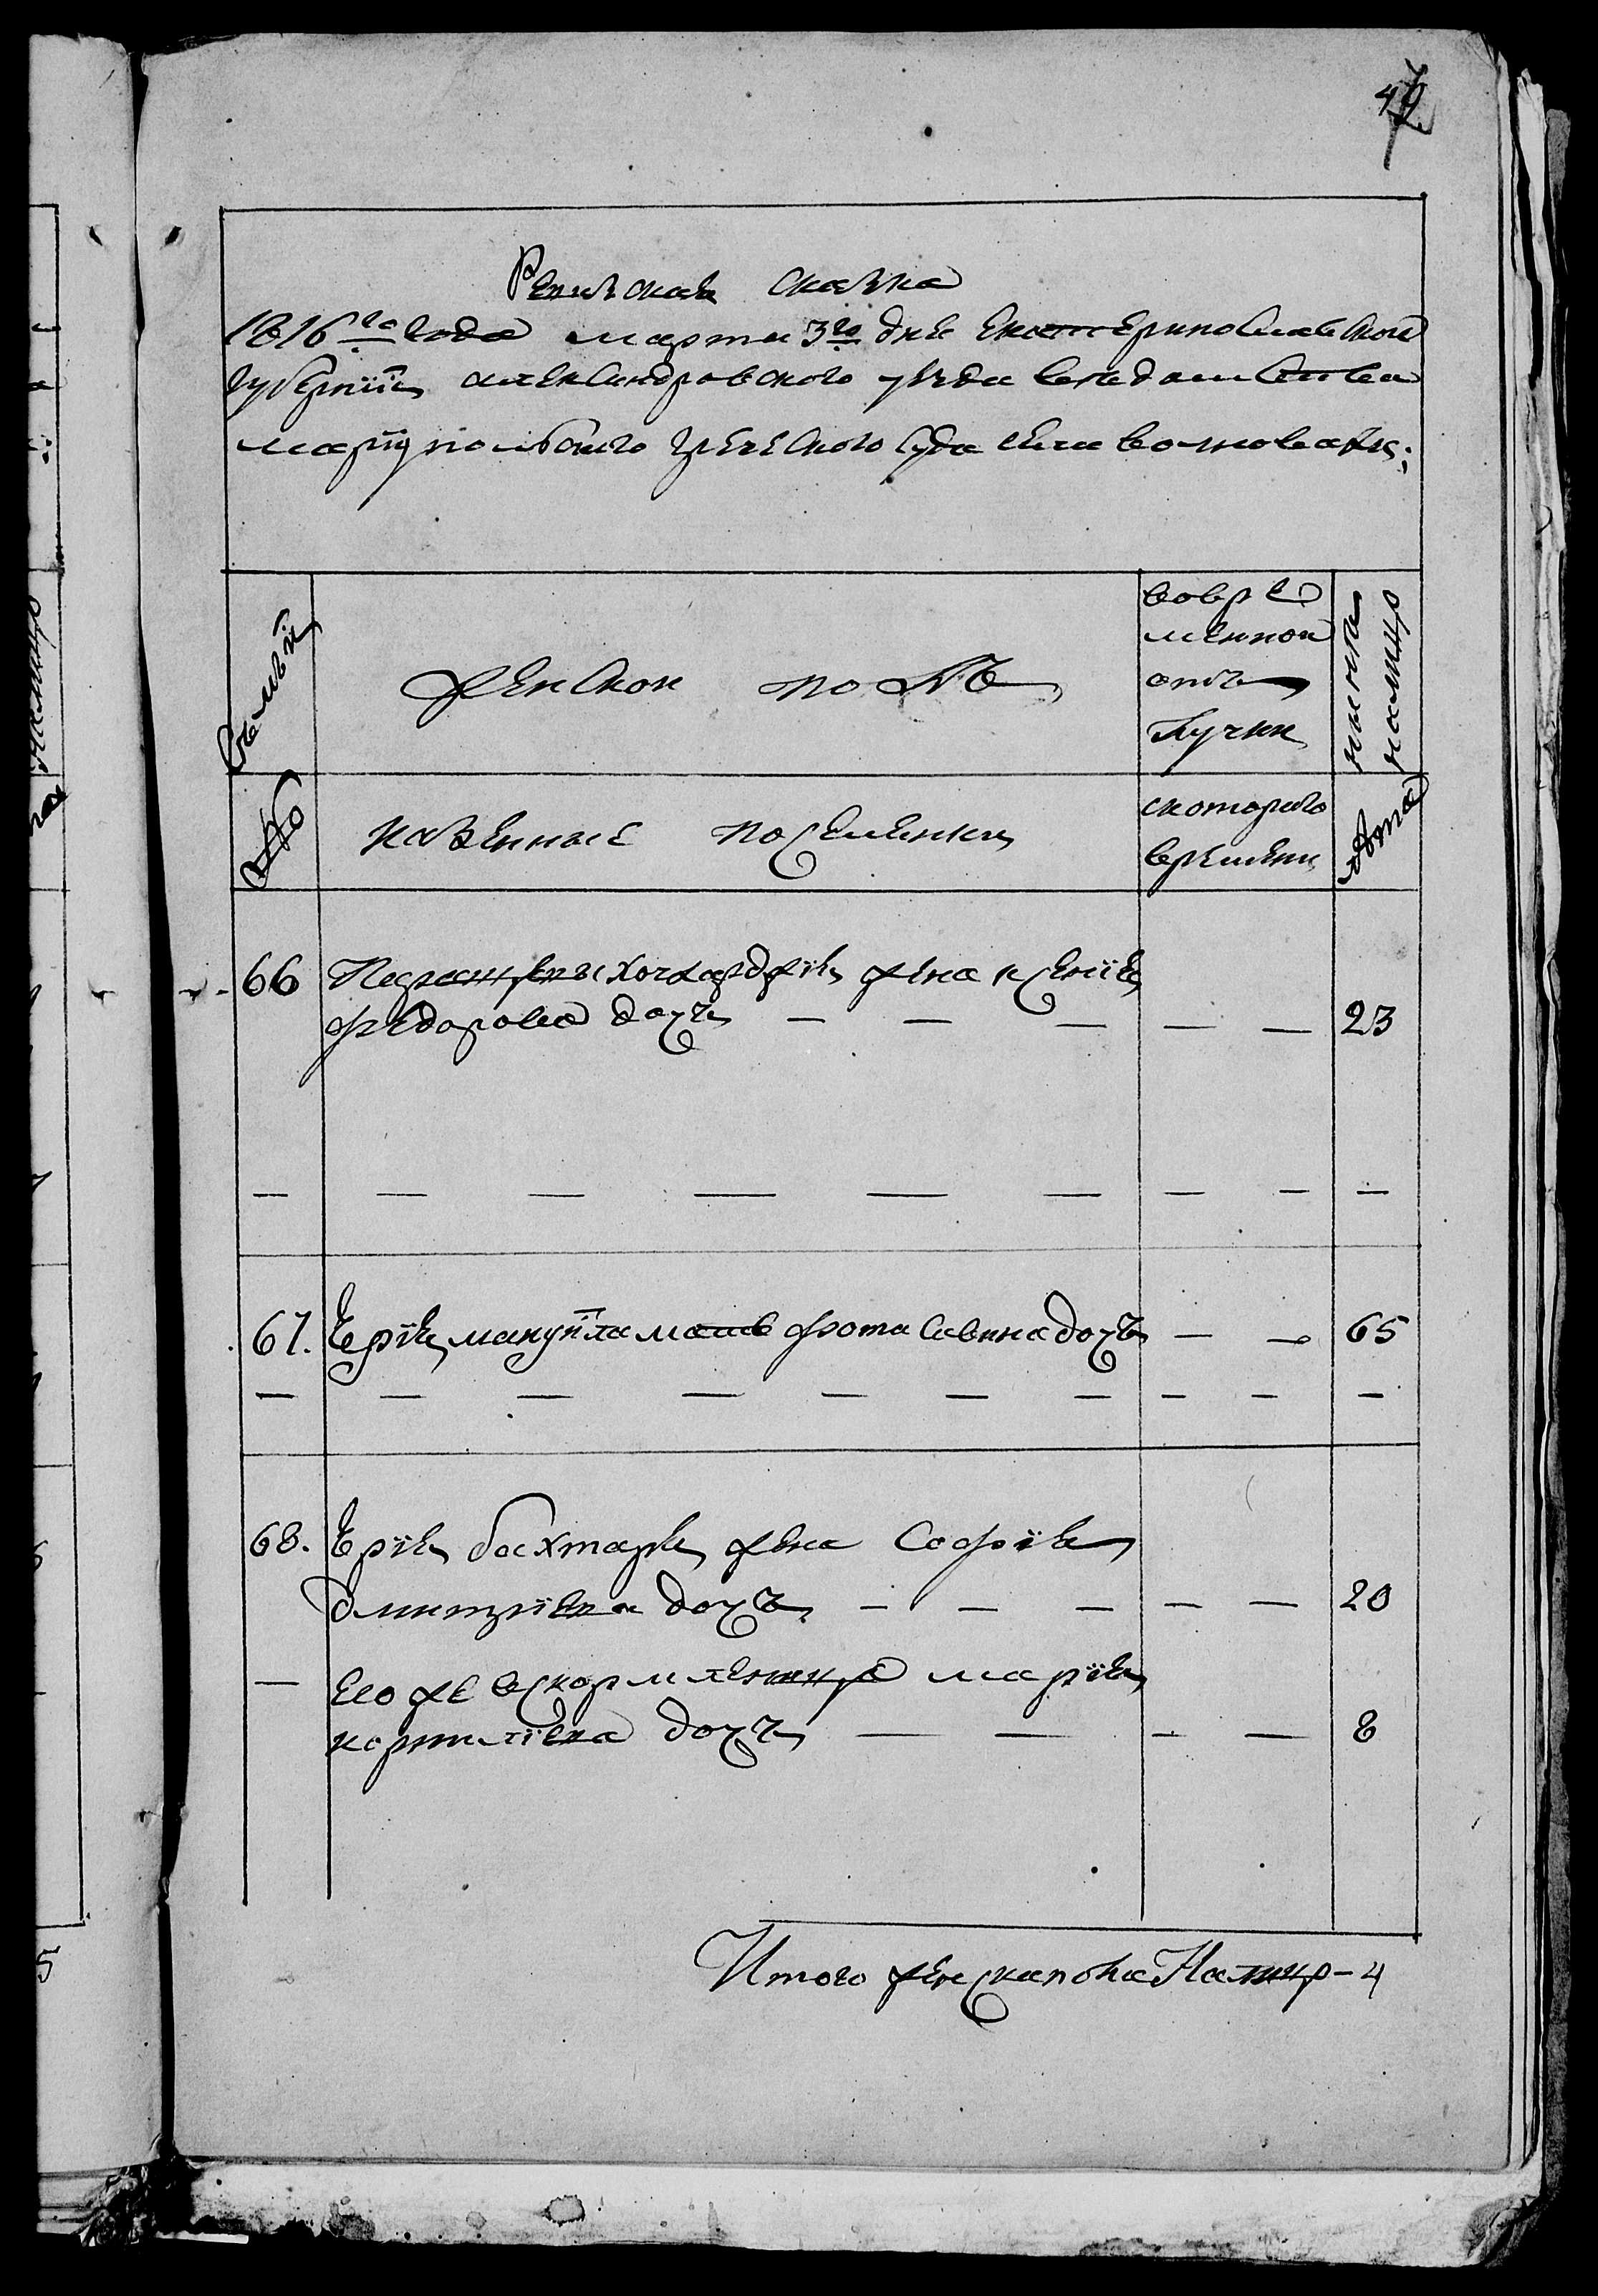 47
Ревизская сказка
1816го года марта 3го дня Екатеринославской
губернїи александровского уезда ведомства
мариупольского греческого суда села волновахи;
Семьи
женской полъ
вовре
менной
отъ
лучки
ныне
налицо
№
казенные поселенки
скоторого
времени
лета
66 хочхарджїя жена ксенїя
федорова дочъ — — — — — 23
— — — — — — — — —
67. Юрїя мануйла мать фота савина дочъ — — 65
— — — — — — — — — —
68. Юрїя бахтаря жена Софїя
дмитрїева дочъ — — — — — 20
— Его же вскормленница марїя
корнилїева дочъ — — — — 8
Итого женска пола Налицо — 4
5